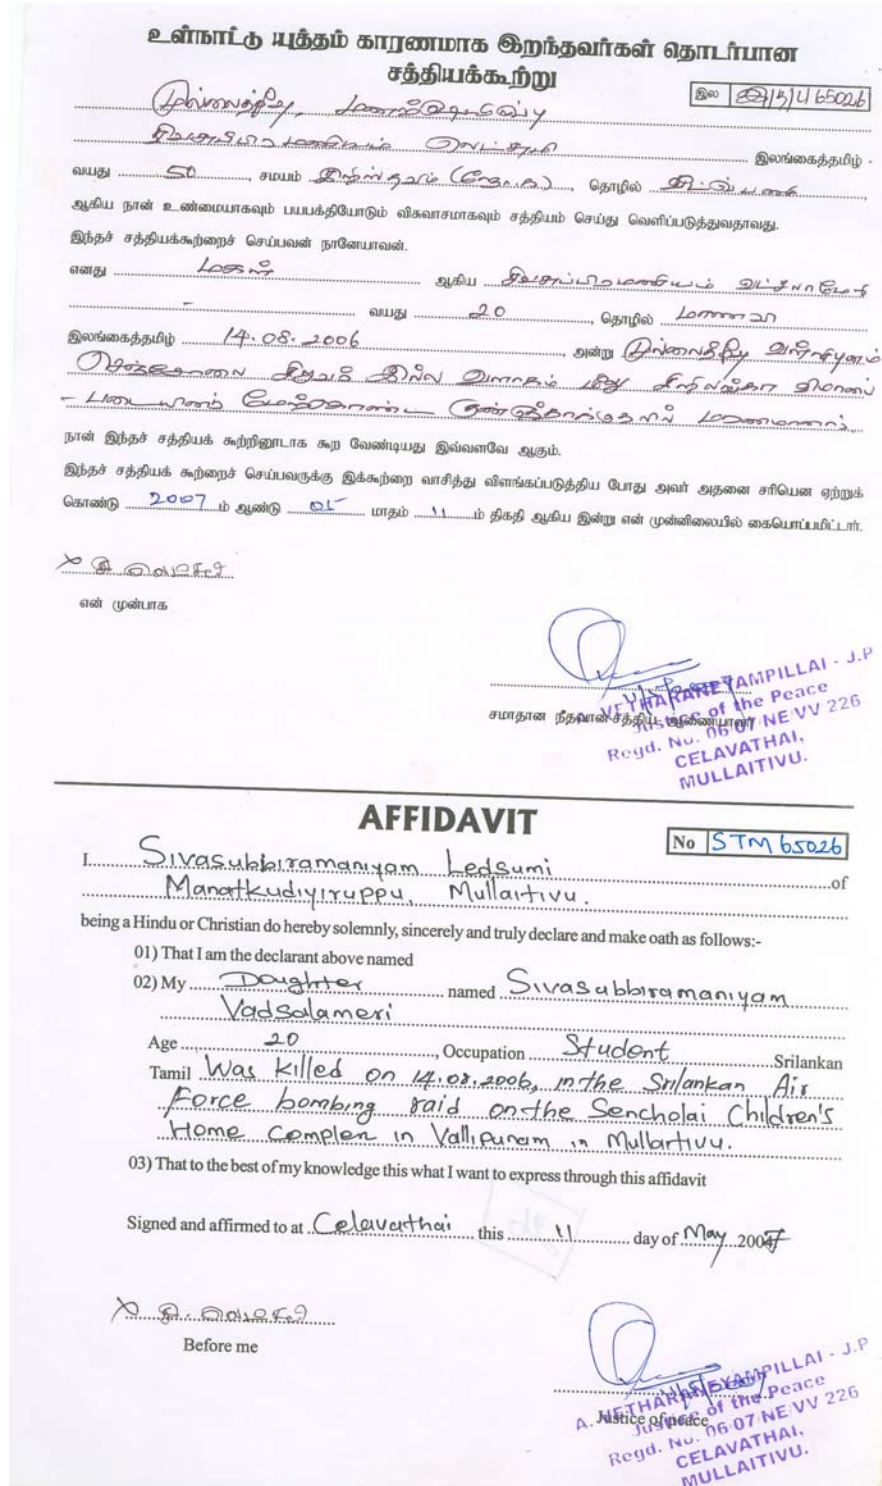 உள்நாட்டு யுத்தம் காரணமாக இறந்தவர்கள் தொடர்பான
சத்தியக்கூற்று
இல 65026
முல்லைத்தீவு,
இலங்கைத்தமிழ் -
வயது 50, சமயம், தொழில்
ஆகிய நான் உண்மையாகவும் பயபக்தியோடும் விசுவாசமாகவும் சத்தியம் செய்து வெளிப்படுத்துவதாவது.
இந்தச் சத்தியக்கூற்றைச் செய்பவன் நானேயாவன்.
எனது மகள் ஆகிய
- வயது 20, தொழில் மாணவி
இலங்கைத்தமிழ் 14.08.2006, அன்று முல்லைத்தீவு வள்ளிபுனம்
செஞ்சோலை சிறுவர் இல்ல வளாகம் மீது சிறிலங்கா விமானப்
- படையினர் மேற்கொண்ட குண்டுத்தாக்குதலில் மரணமானார்.
நான் இந்தச் சத்தியக் கூற்றினூடாக கூற வேண்டியது இவ்வளவே ஆகும்.
இந்தச் சத்தியக் கூற்றைச் செய்பவருக்கு இக்கூற்றை வாசித்து விளங்கப்படுத்திய போது அவர் அதனை சரியென ஏற்றுக்
கொண்டு 2007 ம் ஆண்டு 05 மாதம் 11 ம் திகதி ஆகிய இன்று என் முன்னிலையில் கையொப்பமிட்டார்.
என் முன்பாக
சமாதான நீதவான் சத்திய ஆணையாளர்
A. VETHARANEYAMPILLAI - J.P
Justice of the Peace
Regd. No. 06 07 NE VV 226
CELAVATHAI,
MULLAITIVU.
AFFIDAVIT
No STM 65026
I Sivasubbiramaniyam Ledsumi
Manatkudiyiruppu, Mullaitivu. of
being a Hindu or Christian do hereby solemnly, sincerely and truly declare and make oath as follows:-
01) That I am the declarant above named
02) My Doughter named Sivasubbiramaniyam
Vadsalameri
Age 20, Occupation Student Srilankan
Tamil Was killed on 14.08.2006, in the Srilankan Air
Force bombing raid on the Sencholai Children's
Home Complen in Vallipunam in Mullaitivu.
03) That to the best of my knowledge this what I want to express through this affidavit
Signed and affirmed to at Celavathai this 11 day of May 2007
Before me
Justice of peace
A. VETHARANEYAMPILLAI - J.P
Justice of the Peace
Regd. No. 06 07 NE VV 226
CELAVATHAI,
MULLAITIVU.